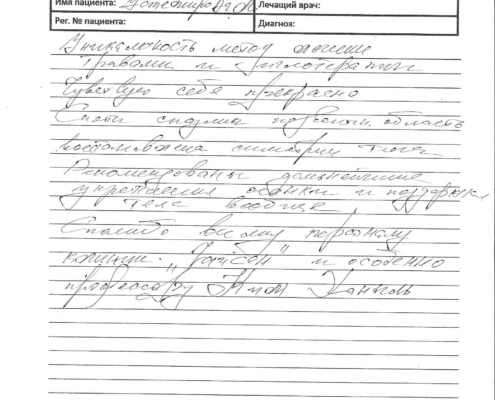 Имя пациента: Лечащий врач:
Рег. № пациента: Диагноз:
Уникальность метод лечения
травами и иглотерапии
Чувствую себя прекрасно
Сняти спазмы область
восстановлена симетрия тела
Рекомендованы дальнейшие
укрепления осанки и поддержка
тела вообще
Спасибо всему персоналу
клиники и особенно
профессору Ким